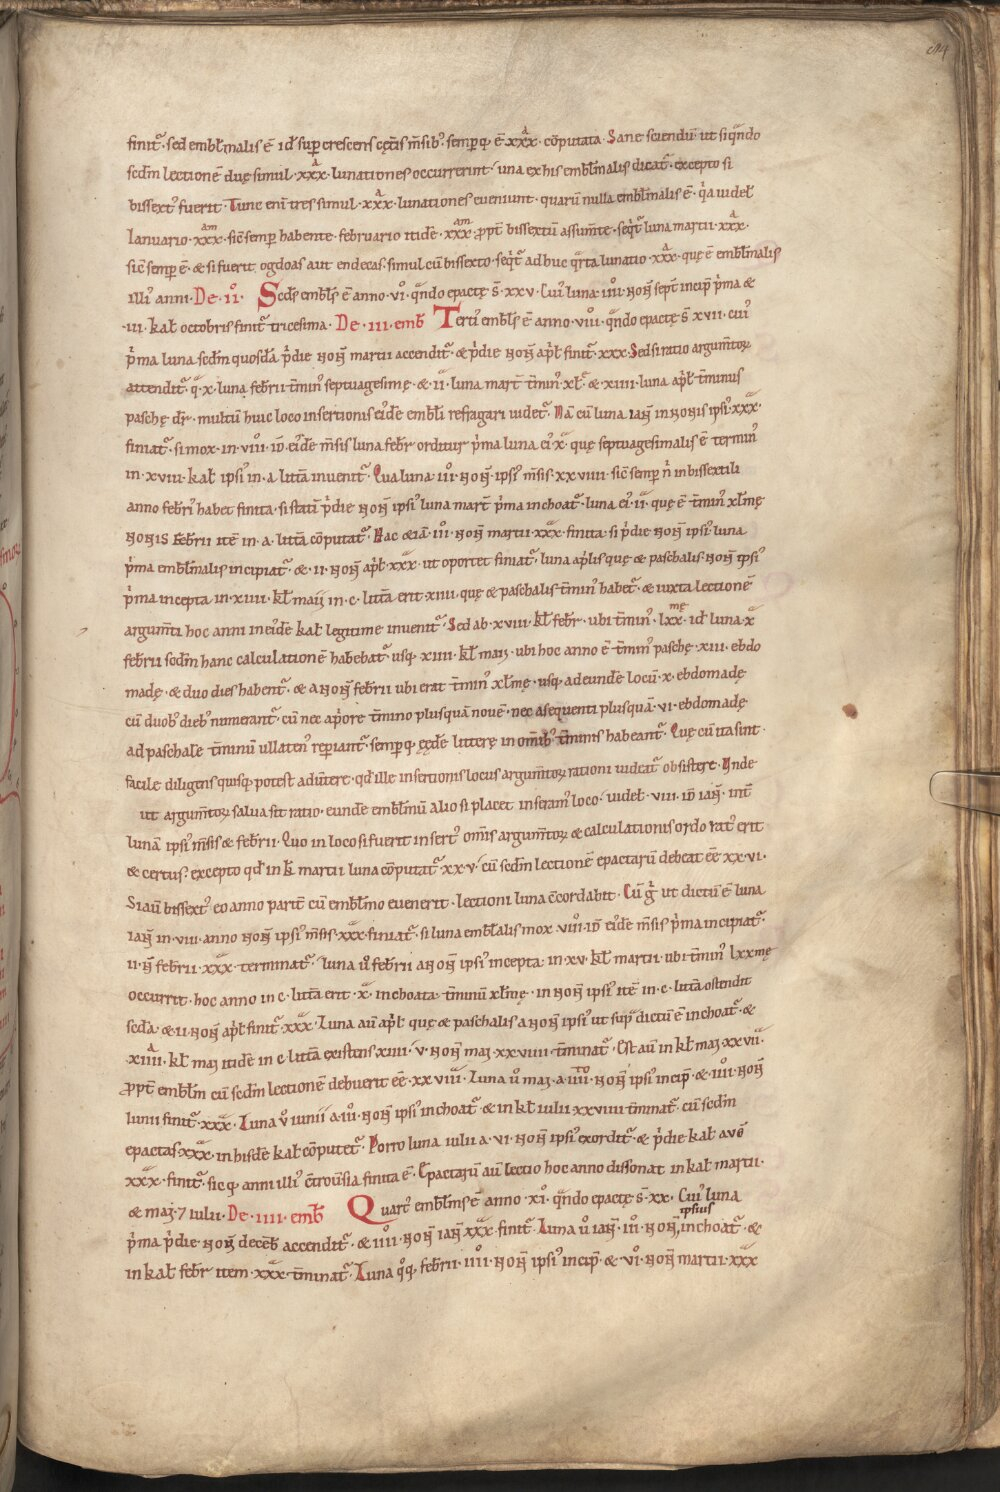 finit᷒· sed embl̄malis ē id̄ suꝑcrescens cęt̄is m̄sib᷒· semꝑq; ē xxxᴬ· cōputata· Sane sciendū ut siqͣndo
scd̄m lectionē duę simul xxxᴬ· lunationes occurrerint· una ex his embl̄malis dicat᷒· excepto si
bissext᷒ fuerit· Tunc eni tres simul xxxᴬ· lunationes eveniunt· quarū nulla embl̄malis ē· qͥa uidel̄
Ianuario xxxᵃᵐ sic̄ semꝑ habente· februario itidē xxxᵃᵐ ꝓpt̄ bissextū assum̄te· seqͥt᷒ luna martii xxxᴬ·
sic̄ semꝑ ē· & si fuerit ogdoas aut endecas simul cū bissexto· seqͥt᷒ adhuc qͣrta lunatio xxxᴬ· quę ē embl̄malis
illi᷒ anni· De· ii᷒· Scd̄s embl̄s ē anno· vi᷒· qͣndo epactę s̄ xxv· Cui᷒ luna iiii᷒ non̄ sept̄ incip̄ pͥma &
·iii· kal̄ octobris finit᷒ tricesima· De· iii· emb̄ Terti᷒ embl̄s ē anno· viii᷒· qͣndo epactę s̄ xvii· cui᷒
pͥma luna scd̄m quosdā pͥdie non̄ martii accendit᷒· & pͥdie non̄ apl̄ finit᷒ xxx· Sed si ratio argum̄toꝝ
attendit᷒ q̄ x· luna febrii t̄min᷒ septuagesimę· & ii· luna mart̄ t̄min᷒ xl̄ᵉ· & xiiii· luna apl̄ t̄minus
paschę dr̄· multū huic loco insertionis ei᷒dē embl̄i reffagari uidet᷒· Nā cū luna ian̄ in nonis ipsi᷒ xxx·
finiat᷒· si mox· in viii᷒· id̄ ei᷒dē m̄sis luna febr̄ orditur pͥma luna ei᷒ x· quę septuagesimalis ē termin᷒
in xviii· kal̄ ipsi᷒ in· a· litt̄a invenit᷒· Qua luna iii᷒ non̄· ipsi᷒ m̄sis xxviiii· sic̄ semꝑ nͥ in bissextili
anno febri᷒ habet finita· si statī pͥdie non̄ ipsi᷒ luna mart̄ pͥma inchoat᷒· luna ei᷒· ii· quę ē t̄min᷒ xl̄mę
nonis febrii itē in· a· litt̄a cōputat᷒· Hac & iā· iii᷒· non̄ martii xxx· finita· si pͥdie non̄ ipsi᷒ luna
pͥma embl̄malis incipiat᷒· & ii· non̄ apl̄ xxx· ut oportet finiat᷒· luna aplis quę & paschalis non̄ ipsi᷒
pͥma incepta in xiiii· kl̄ maii in· c· litt̄a erit xiiii· quę & paschalis t̄min᷒ habet᷒· & iuxta lectionē
argum̄ti hoc anni in eidē kal̄ legitime invenit᷒· Sed ab· xviii· kl̄ febr̄· ubi t̄min᷒· lxxᵐᵉ· id̄ luna x
febrii scd̄m hanc calculationē habebat᷒· usq; xiiii· kl̄ maii· ubi hoc anno ē t̄min᷒ paschę· xiii· ebdo
madę· & duo dies habent᷒· & a non̄ febrii ubi erat t̄min᷒ xl̄mę· usq; ad eundē locū· x· ebdomadę
cū duob᷒ dieb᷒ numerant᷒· cū nec apͥore t̄mino plusquā novē· nec a sequenti plusquā· vi· ebdomadę
ad paschale t̄minū ullaten᷒ reꝑiant᷒· semꝑq; ęędē litterę in om̄ib᷒ t̄minis habeant᷒· Quę cū ita sint
facile diligens quisq; potest adūtere· qd̄ ille insertionis locus argum̄toꝝ rationi videat᷒ obsistere· Unde
ut argum̄toꝝ salva sit ratio· eundē embl̄mū alio si placet inseram᷒ loco· videl̄· viii· id̄ ian̄· int̄
lunā ipsi᷒ m̄sis & febrii· Quo in loco si fuerit insert᷒ om̄is argum̄toꝝ & calculationis ordo rat᷒ erit
& certus· excepto qd̄ in kl̄ martii luna cōputat᷒ xxv· cū scd̄m lectionē epactarū debeat eē xxvi·
Si aū bissext᷒ eo anno parit̄ cū embl̄mo evenerit· lectioni luna c̄cordabit· Cū gͥ ut dictū ē luna
ian̄ in viii· anno non̄ ipsi᷒ m̄sis xxx finiat᷒· si luna embl̄alis mox viii᷒· id̄ ei᷒dē m̄sis pͥma incipiat᷒·
ii· n̄ febrii· xxx· terminat᷒· luna ū febrii a non̄ ipsi᷒ incepta in xv· kl̄ martii· ubi t̄min᷒ lxxmę
occurrit· hoc anno in c· litt̄a erit x· inchoata t̄minū xl̄mę· in non̄ ipsi᷒ itē in· c· litt̄a ostendit
scd̄a· & ii· non̄ apl̄ finit᷒ xxx· Luna aū apl̄ quę & paschalis a non̄ ipsi᷒ ut sup̄ dictū ē inchoat᷒· &
xiiiiᴬ· kl̄ maii itidē in c litt̄a existens xiiii· v· non̄ maii xxviiii t̄minat᷒· Est aū in kl̄ maii xxvii·
ꝓpt̄ embl̄m cū scd̄m lectionē debuerit eē· xxviii· Luna ū maii· a iiii᷒· non̄ ipsi᷒ incip̄· & iiii· non̄
iunii finit᷒· xxx· Luna ū iunii a· iii᷒· non̄ ipsi᷒ inchoat᷒ & in kl̄ iulii xxviiii t̄minat᷒· cū scd̄m
epactas xxx· in hisdē kal̄ cōputet᷒· Porro luna iulii a· vi· non̄ ipsi᷒ exordit᷒· & pͥdie kal̄ avḡ
xxx· finit᷒· sicq; anni illi᷒ c̄trov̄sia finita ē· Epactarū aū lectio hoc anno dissonat in kal̄ martii·
& maii· ⁊ iulii· De· iiii· emb̄ Quart᷒ embl̄ms ē anno· xi᷒· qͣndo epactę s̄ xx· Cui᷒ luna
pͥma pͥdie non̄ deceb̄ accendit᷒· & iiii᷒· non̄ ian̄ xxx· finit᷒· Luna ū ian̄· iii᷒· non̄ ipsius inchoat᷒· &
in kal̄ febr̄ item xxx· t̄minat᷒· Luna qͦq; febrii· iiii· non̄ ipsi᷒ incip̄· & vi᷒· non̄ martii· xxx